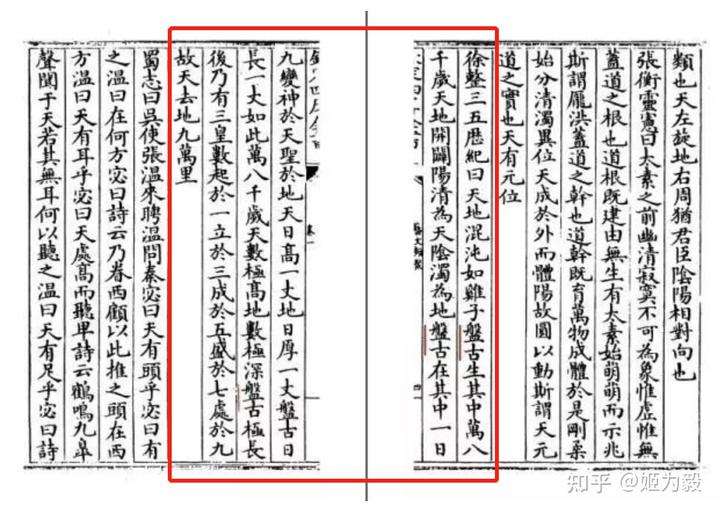 類也天左旋地右周猶君臣陰陽相對向也
張衡靈憲曰太素之前幽清寂寞不可為象惟虛惟無
蓋道之根也道根既建由無生有太素始萌萌而示兆
斯謂龐洪蓋道之幹也道幹既育萬物成體於是剛柔
始分清濁異位天成於外而體陽故圓以動斯謂天元
道之實也天有元位
徐整三五歷紀曰天地混沌如雞子盤古生其中萬八
千歲天地開闢陽清為天陰濁為地盤古在其中一日
九變神於天聖於地天日高一丈地日厚一丈盤古日
長一丈如此萬八千歲天數極高地數極深盤古極長
後乃有三皇數起於一立於三成於五盛於七處於九
故天去地九萬里
蜀志曰吳使張溫來聘溫問秦宓曰天有頭乎宓曰有
之溫曰在何方宓曰詩云乃眷西顧以此推之頭在西
方溫曰天有耳乎宓曰天處高而聽卑詩云鶴鳴九皋
聲聞于天若其無耳何以聽之溫曰天有足乎宓曰詩
知乎 @姬为毅